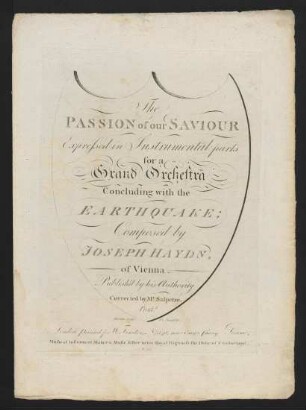 The
PASSION of our SAVIOUR
Expressed in Instrumental parts
for a
Grand Orchestra
Concluding with the
EARTHQUAKE;
Composed by
JOSEPH HAYDN,
of Vienna
Publish'd by his Authority
Corrected by Mr.
London Printed for